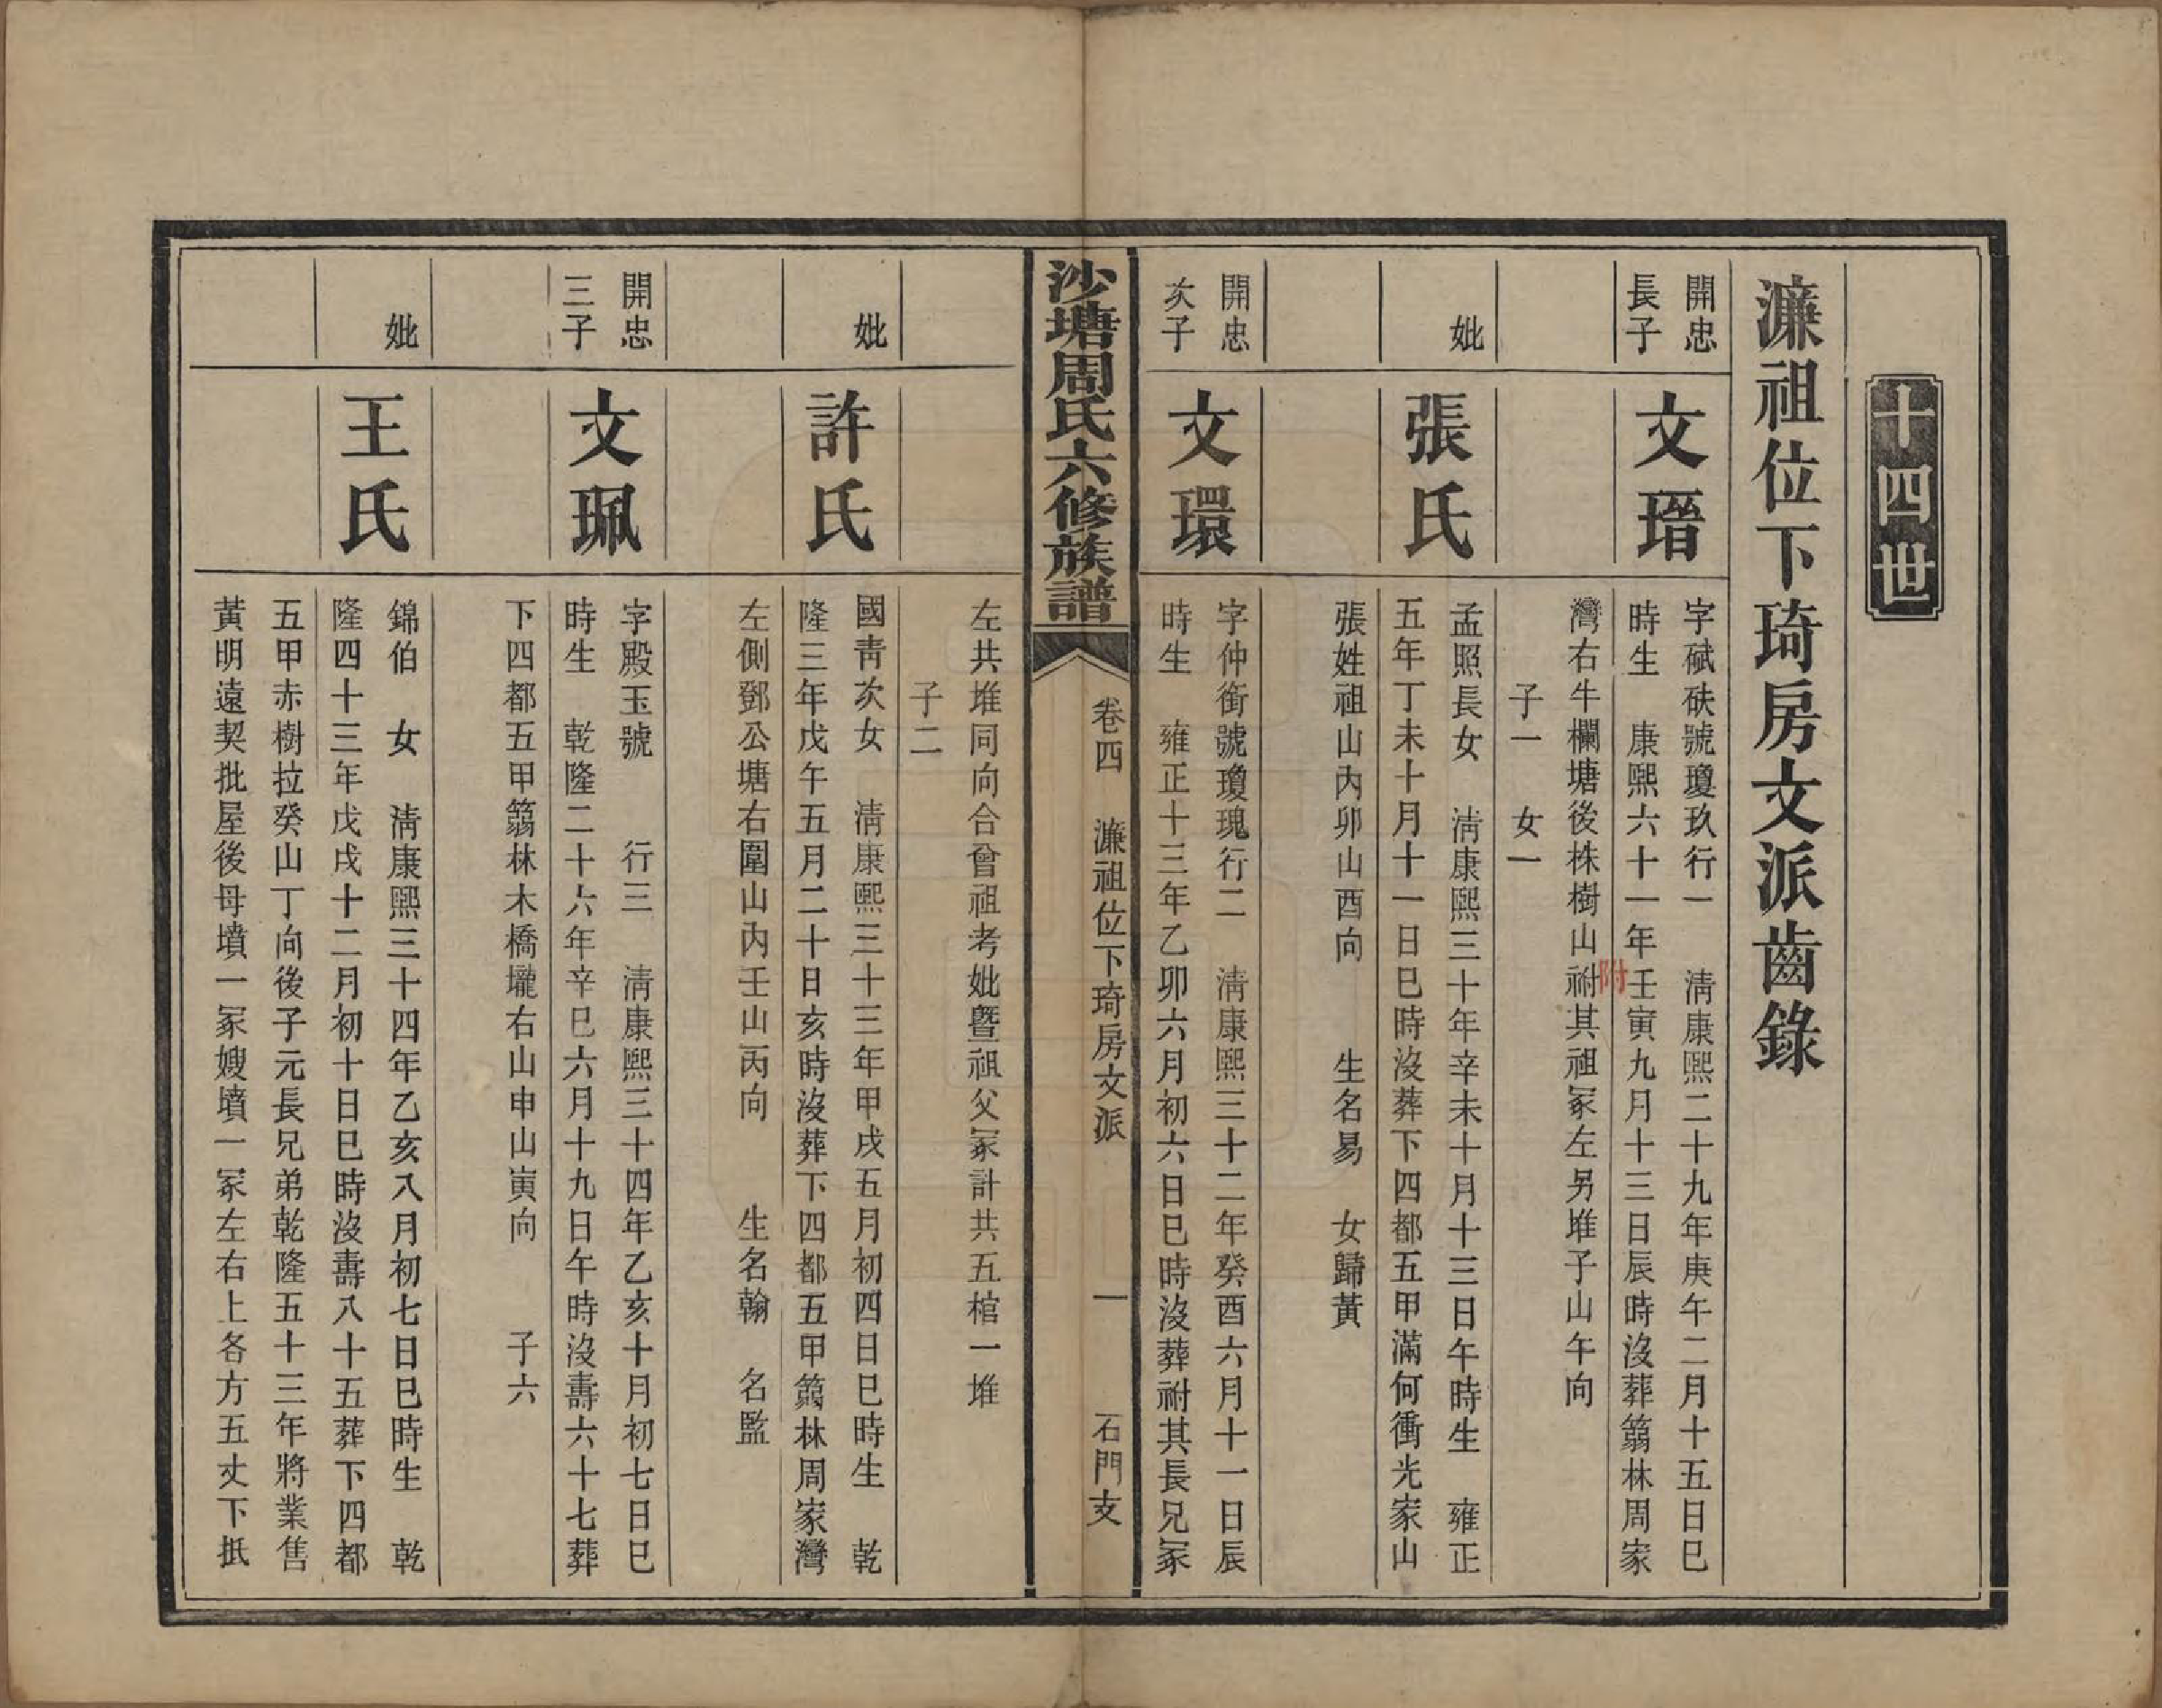 十四世
濂祖位下琦房文派齒錄
開忠
長子
文瑨
字碔砆號瓊玖行一　淸康熙二十九年庚午二月十五日巳
時生　康熙六十一年壬寅九月十三日辰時沒葬篛林周家
灣右牛欄塘後株樹山祔其祖冢左另堆子山午向
附
子一　女一
妣
張氏
孟照長女　淸康熙三十年辛未十月十三日午時生　雍正
五年丁未十月十一日巳時沒葬下四都五甲滿何衝光家山
張姓祖山內卯山酉向　　生名易　女歸黃
開忠
次子
文環
字仲銜號瓊瑰行二　淸康熙三十二年癸酉六月十一日辰
時生　雍正十三年乙卯六月初六日巳時沒葬祔其長兄冢
沙塘周氏六修族譜
卷四　濂祖位下琦房文派
一
石門支
左共堆同向合曾祖考妣曁祖父冢計共五棺一堆
子二
妣
許氏
國靑次女　淸康熙三十三年甲戌五月初四日巳時生　乾
隆三年戊午五月二十日亥時沒葬下四都五甲篛林周家灣
左側鄧公塘右圍山內壬山丙向　　生名翰　名監
開忠
三子
文珮
字殿玉號　　行三　淸康熙三十四年乙亥十月初七日巳
時生　乾隆二十六年辛巳六月十九日午時沒壽六十七葬
下四都五甲篛林木橋壠右山申山寅向　　子六
妣
王氏
錦伯　女　淸康熙三十四年乙亥八月初七日巳時生　乾
隆四十三年戊戌十二月初十日巳時沒壽八十五葬下四都
五甲赤樹拉癸山丁向後子元長兄弟乾隆五十三年將業售
黃明遠契批屋後母墳一冢嫂墳一冢左右上各方五丈下抵